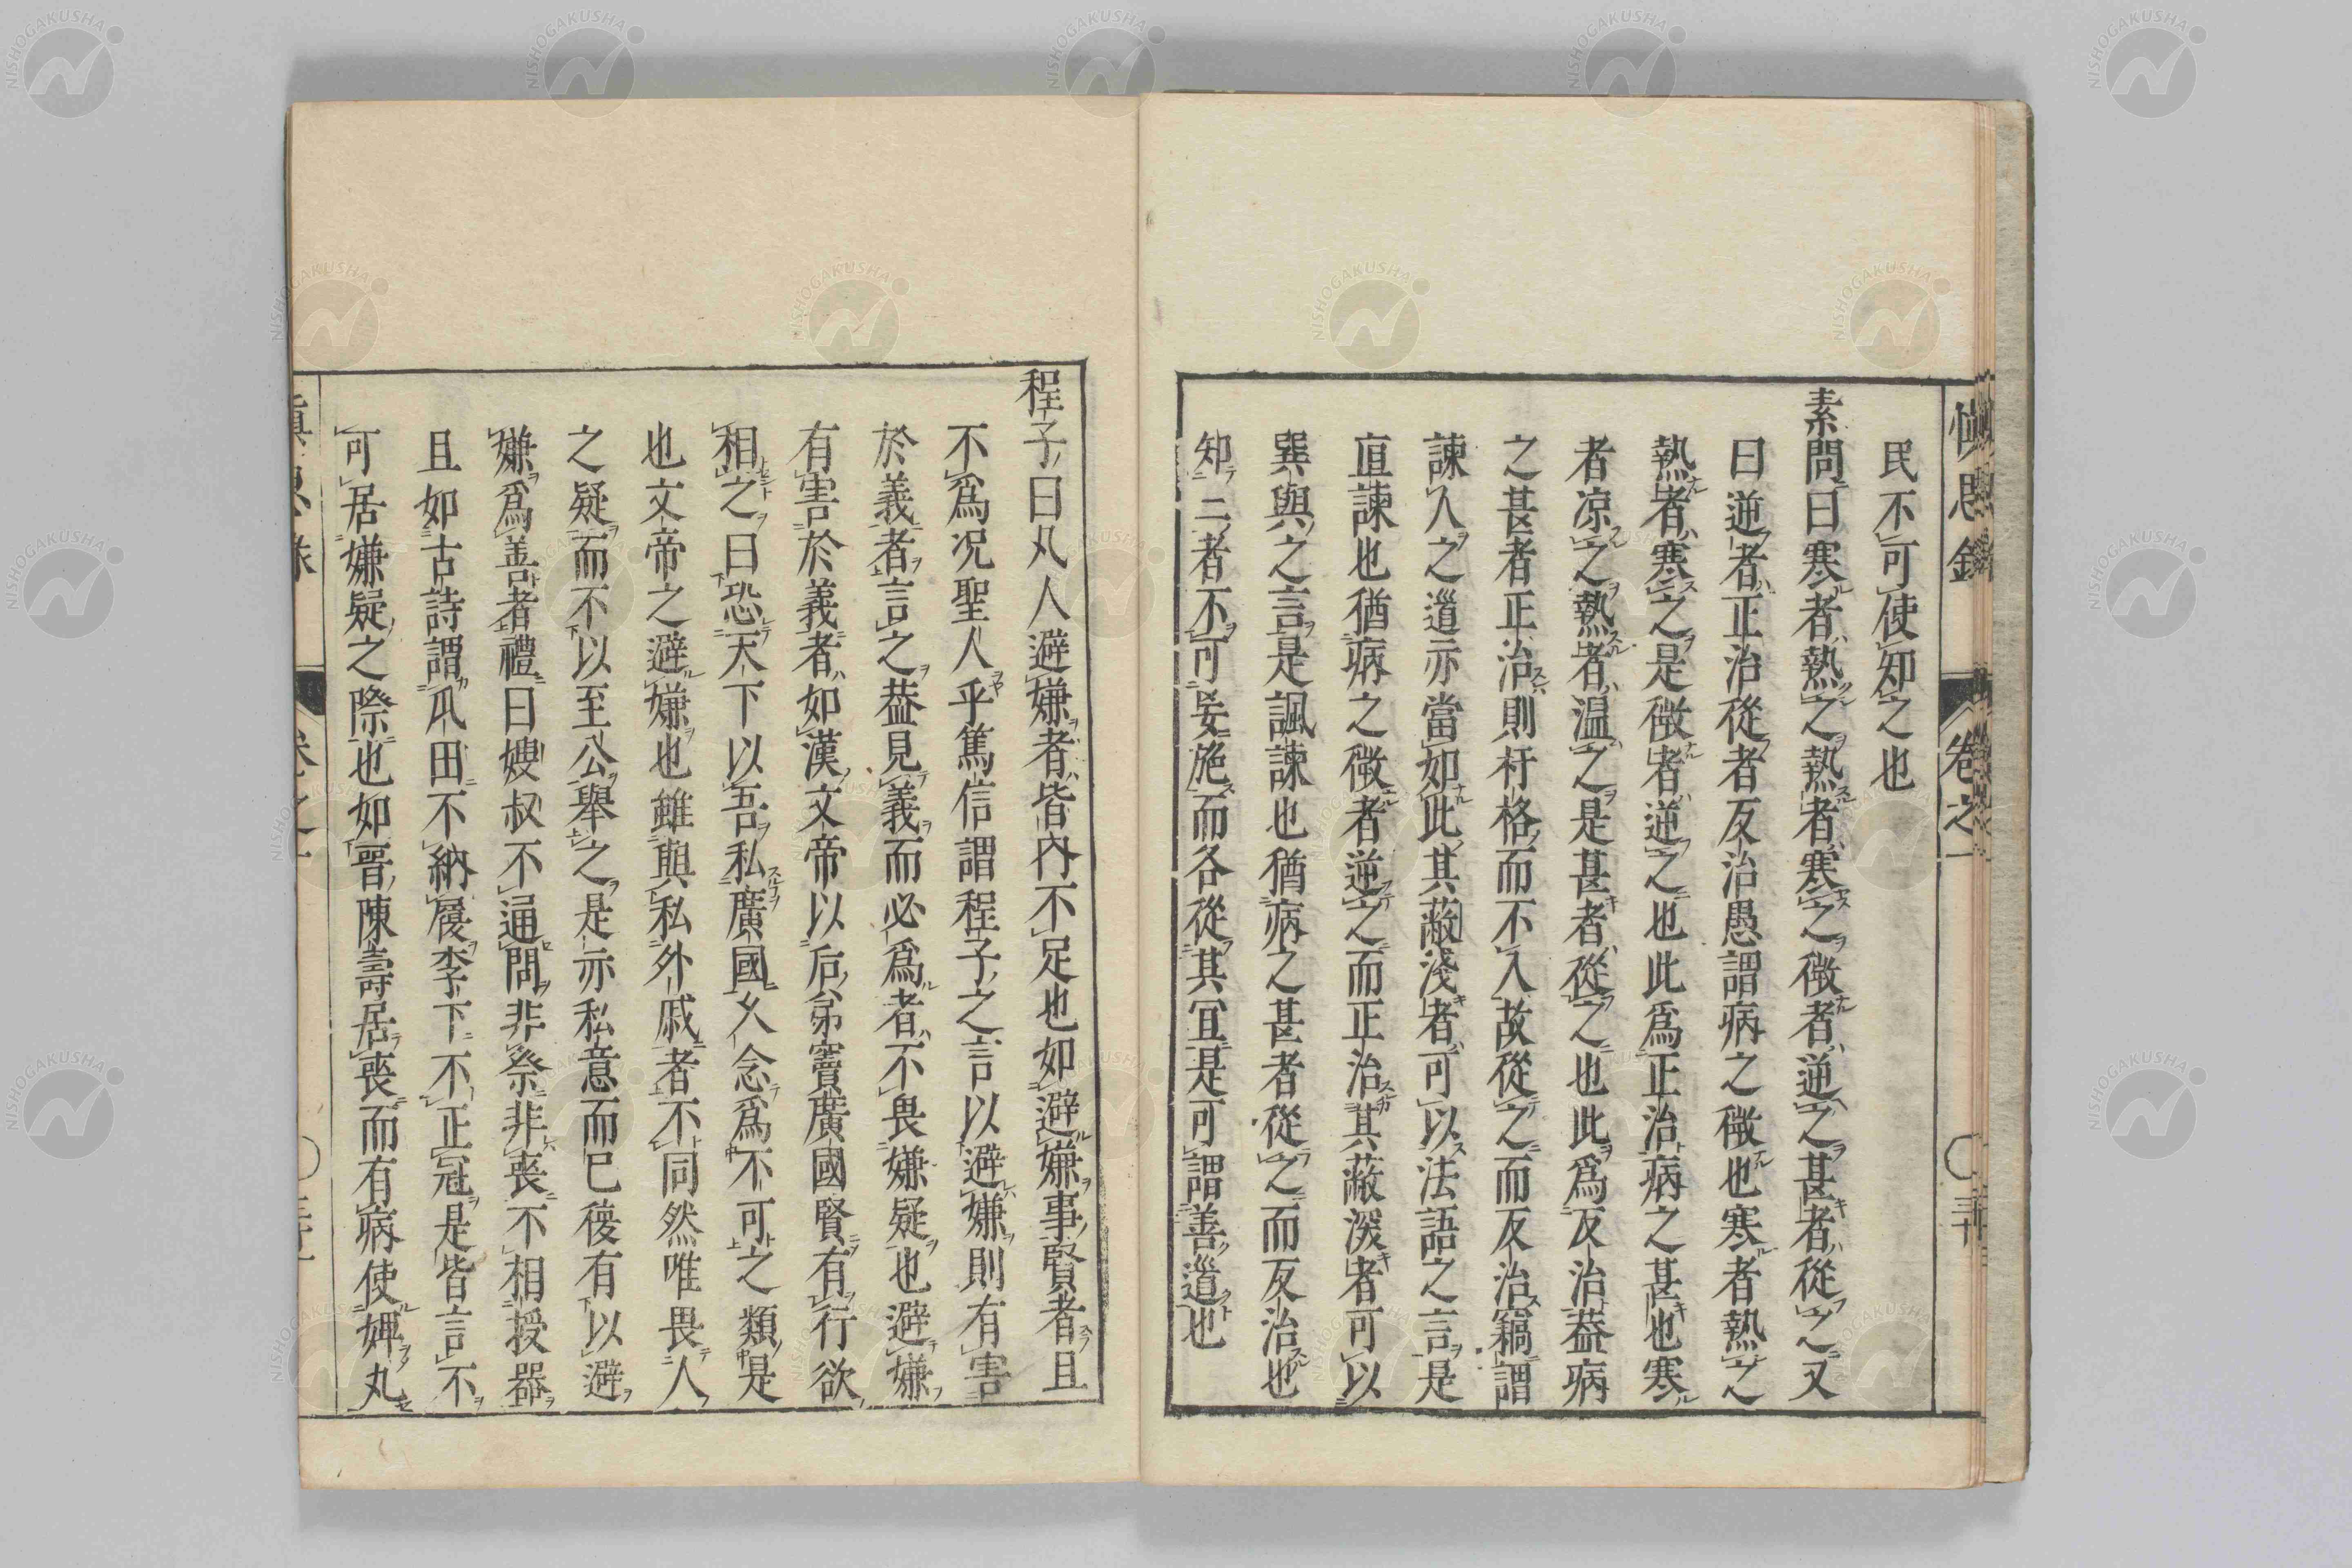 慎思録 卷之一 〇三十
民不可使知之也
素問曰寒者熱之熱者寒之微者逆之甚者從之又
曰逆者正治從者反治愚謂病之微也寒者熱之
熱者寒之是微者逆之也此爲正治病之甚也寒
者凉之熱者温之是甚者從之也此爲反治葢病
之甚者正治則扞格而不入故從之而反治竊謂
諫人之道亦當如此其蔽淺者可以法語之言是
直諫也猶病之微者逆之而正治其蔽深者可以
巽與之言是諷諫也猶病之甚者從之而反治也
知二者不可妄施而各從其宜是可謂善道也
程子曰凡人避嫌者皆内不足也如避嫌事賢者且
不爲况聖人乎篤信謂程子之言以避嫌則有害
於義者言之葢見義而必爲者不畏嫌疑也避嫌
有害於義者如漢文帝以后弟竇廣國賢有行欲
相之曰恐天下以吾私廣國久念爲不可之類是
也文帝之避嫌也雖與私外戚者不同然唯畏人
之疑而不以至公舉之是亦私意而已後有以避
嫌爲善者禮曰嫂叔不通問非祭非喪不相授器
且如古詩謂瓜田不納履李下不正冠是皆言不
可居嫌疑之際也如晉陳壽居喪而有病使婢丸